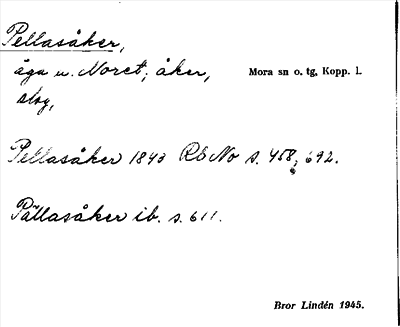 Pellasåker,
äga u. Noret; åker, Mora sn o. tg, Kopp. l.
skog,
Pellasåker 1843 RS No s. 458, 692.
Pällasåker ib. s. 611.
Bror Lindén 1945.